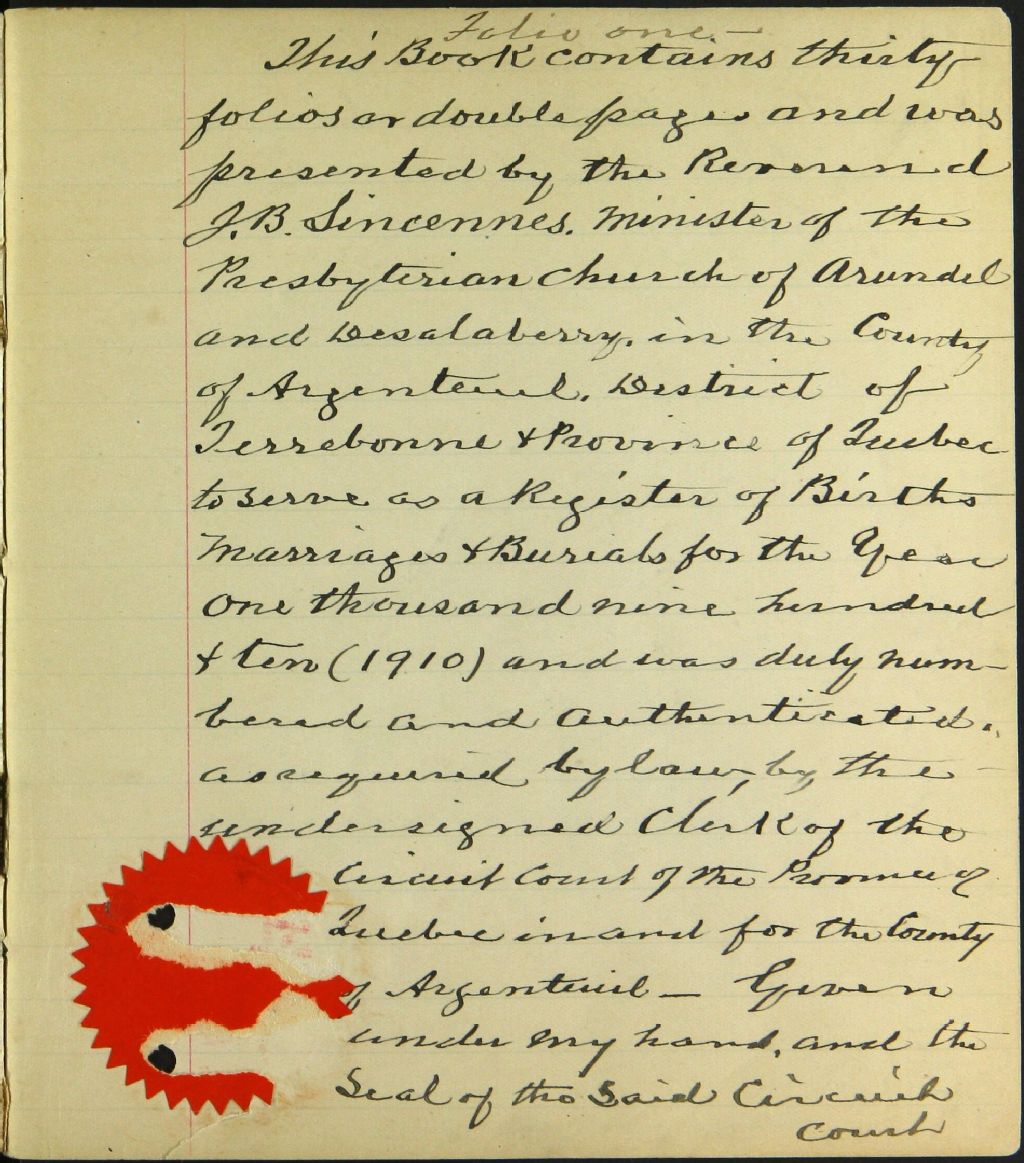 Folio one.—
This Book contains thirty
folios or double pages and was
presented by the Reverend
J.B. Sincennes. Minister of the
Presbyterian Church of Arundel
and Desalaberry. in the County
of Argenteuil. District of
Terrebonne & Province of Quebec
to serve as a Register of Births
Marriages & Burials for the Year
One thousand nine hundred
& ten (1910) and was duly num-
bered and authenticated.
as required by law, by the
undersigned Clerk of the
Circuit Court of the Province of
Quebec in and for the County
of Argenteuil — Given
under my hand, and the
Seal of the Said Circuit
Court